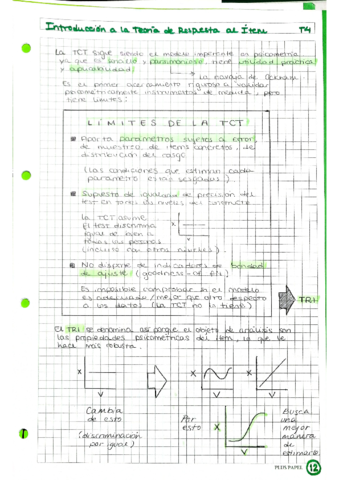 Introducción a la Teoría de Respuesta al Ítem T4
La TCT sigue siendo el modelo imperante en psicometría
ya que es sencillo y parsimonioso, tiene utilidad práctica
y aplicabilidad
La navaja de Ockham
Es el primer acercamiento riguroso a validar
psicométricamente instrumentos de medida, pero
tiene límites:
LÍMITES DE LA TCT
Aporta parámetros sujetos a error
de muestreo de ítems concretos, de
distribución del rasgo
(Las condiciones que estiman cada
parámetro están sesgadas)
Supuesto de igualdad de precisión del
test en todos los niveles del constructo
La TCT asume
el test discrimina
igual de bien a
todas las personas
(incluso con otros ajustes)
No dispone de indicadores de bondad
de ajuste (goodness-of-fit)
Es imposible comprobar si el modelo
es adecuado/mejor que otro respecto
a los datos (la TCT no lo trata)
TRI
El TRI se denomina así porque el objeto de análisis son
las propiedades psicométricas del ítem, lo que le
hace más robusta.
X
V
X
V
X
V
Cambia
de esto
(discriminación
por igual)
Por
esto
X
V
Busca
una
mejor
manera
de
estimarlo
PLIN PAPEL 12